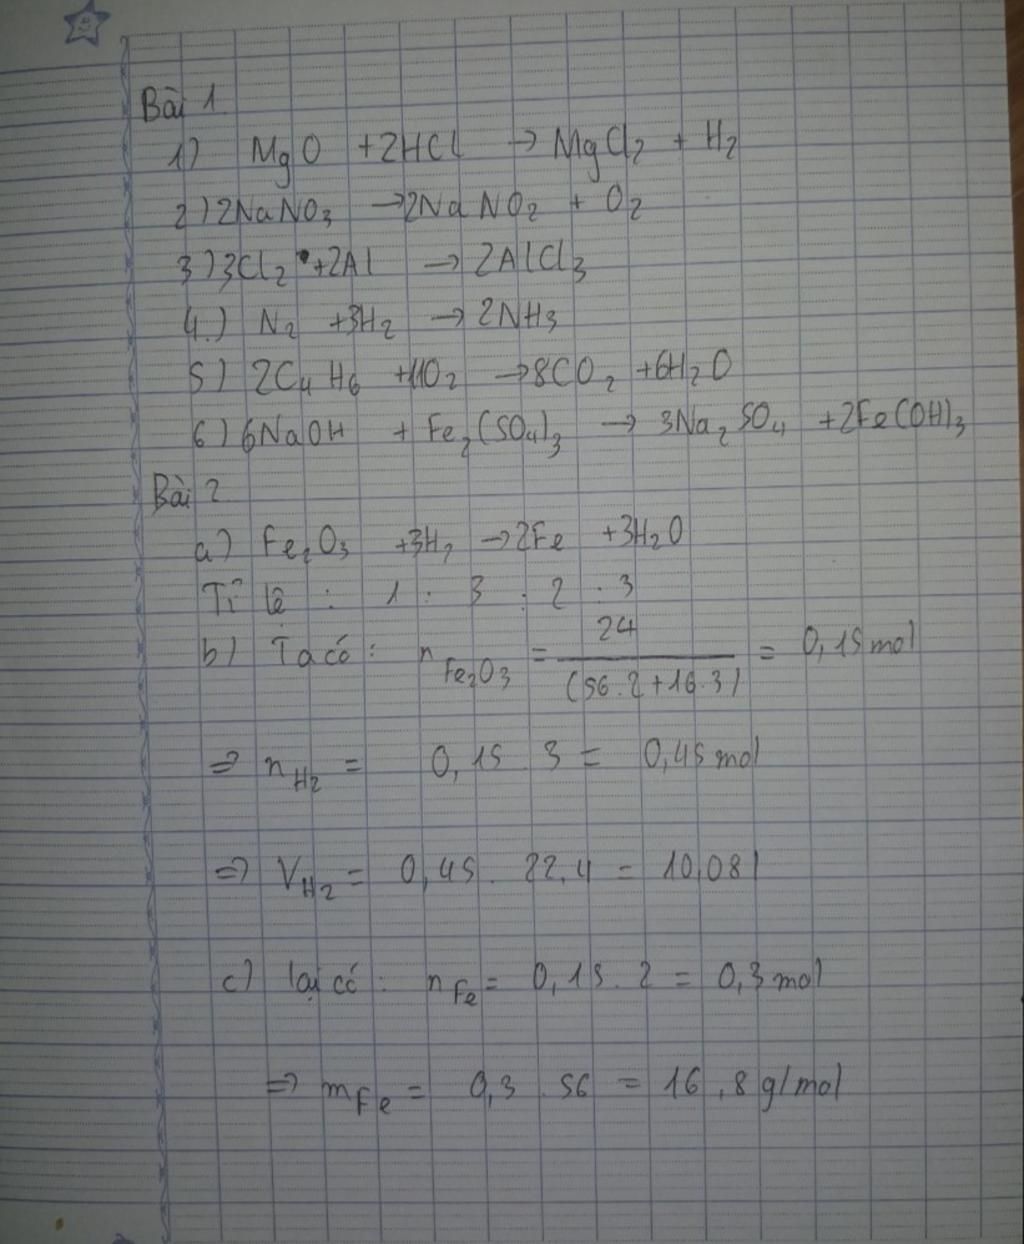 Bài 1
1) MgO +2HCl → MgCl₂ + H₂
2) 2NaNO₃ → 2NaNO₂ + O₂
3) 3Cl₂ +2Al → 2AlCl₃
4.) N₂ +3H₂ → 2NH₃
5) 2C₄H₆ +11O₂ → 8CO₂ +6H₂O
6) 6NaOH + Fe₂(SO₄)₃ → 3Na₂SO₄ +2Fe(OH)₃
Bài 2
a) Fe₂O₃ +3H₂ → 2Fe +3H₂O
Tỉ lệ : 1 : 3 : 2 : 3
b) Ta có : n Fe₂O₃ = 24 / (56.2+16.3) = 0,15 mol
⇒ n H₂ = 0,15 3 = 0,45 mol
⇒ V H₂ = 0,45. 22,4 = 10,08 l
c) lại có : n Fe = 0,15. 2 = 0,3 mol
⇒ m Fe = 0,3 . 56 = 16,8 g/mol